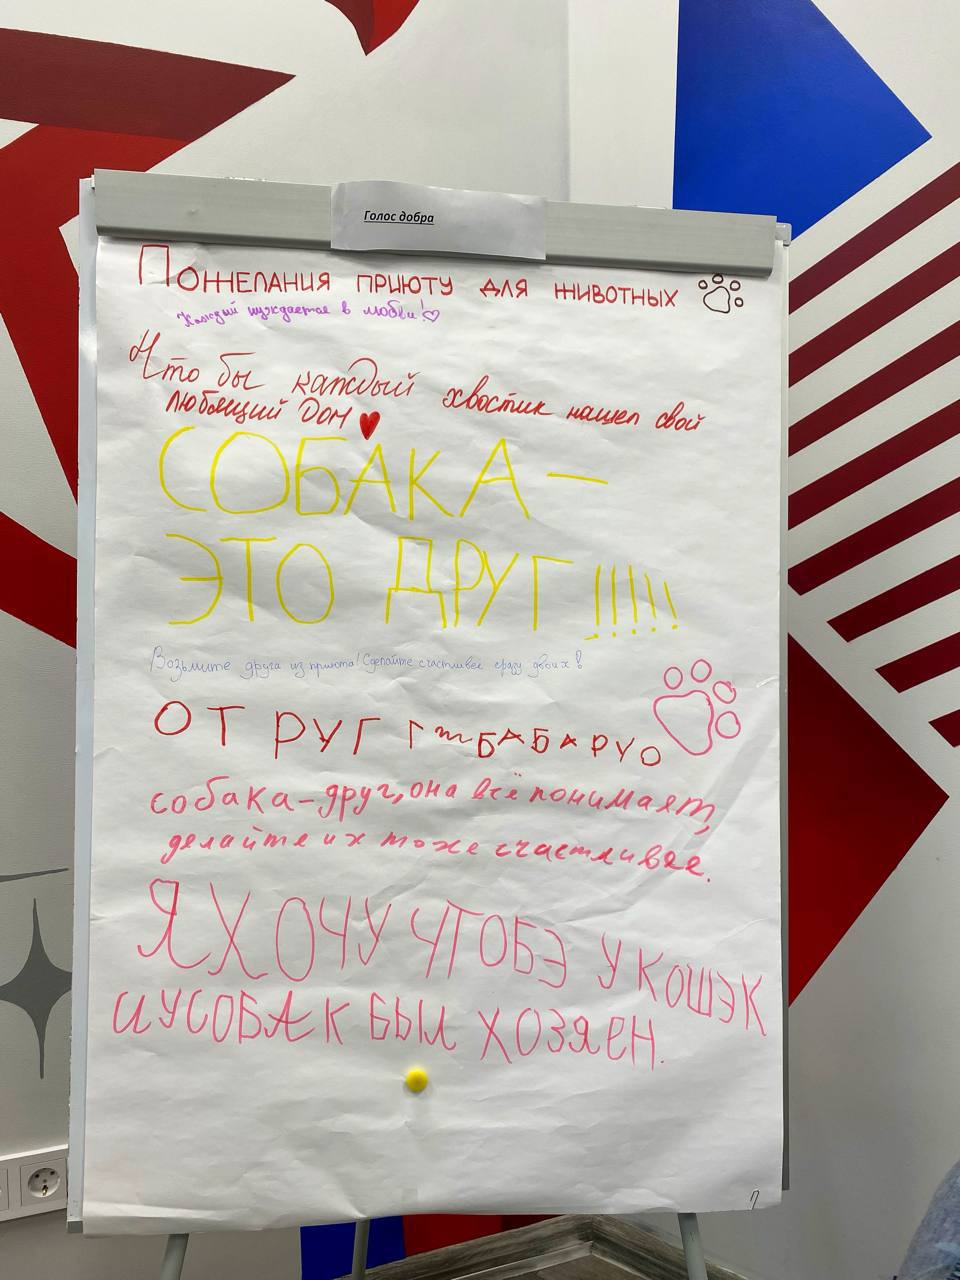 Голос добра
Пожелания приюту для животных
Каждый нуждается в любви!
Что бы каждый хвостик нашел свой
любящий дом
СОБАКА –
ЭТО ДРУГ!!!!!
Возьмите друга из приюта! Сделайте счастливее сразу двоих!
ОТ РУГ
собака-друг, она всё понимает,
делайте их тоже счастливее.
Я ХОЧУ ЧТОБЭ У КОШЭК
И У СОБАК БЫЛ ХОЗЯЕН.